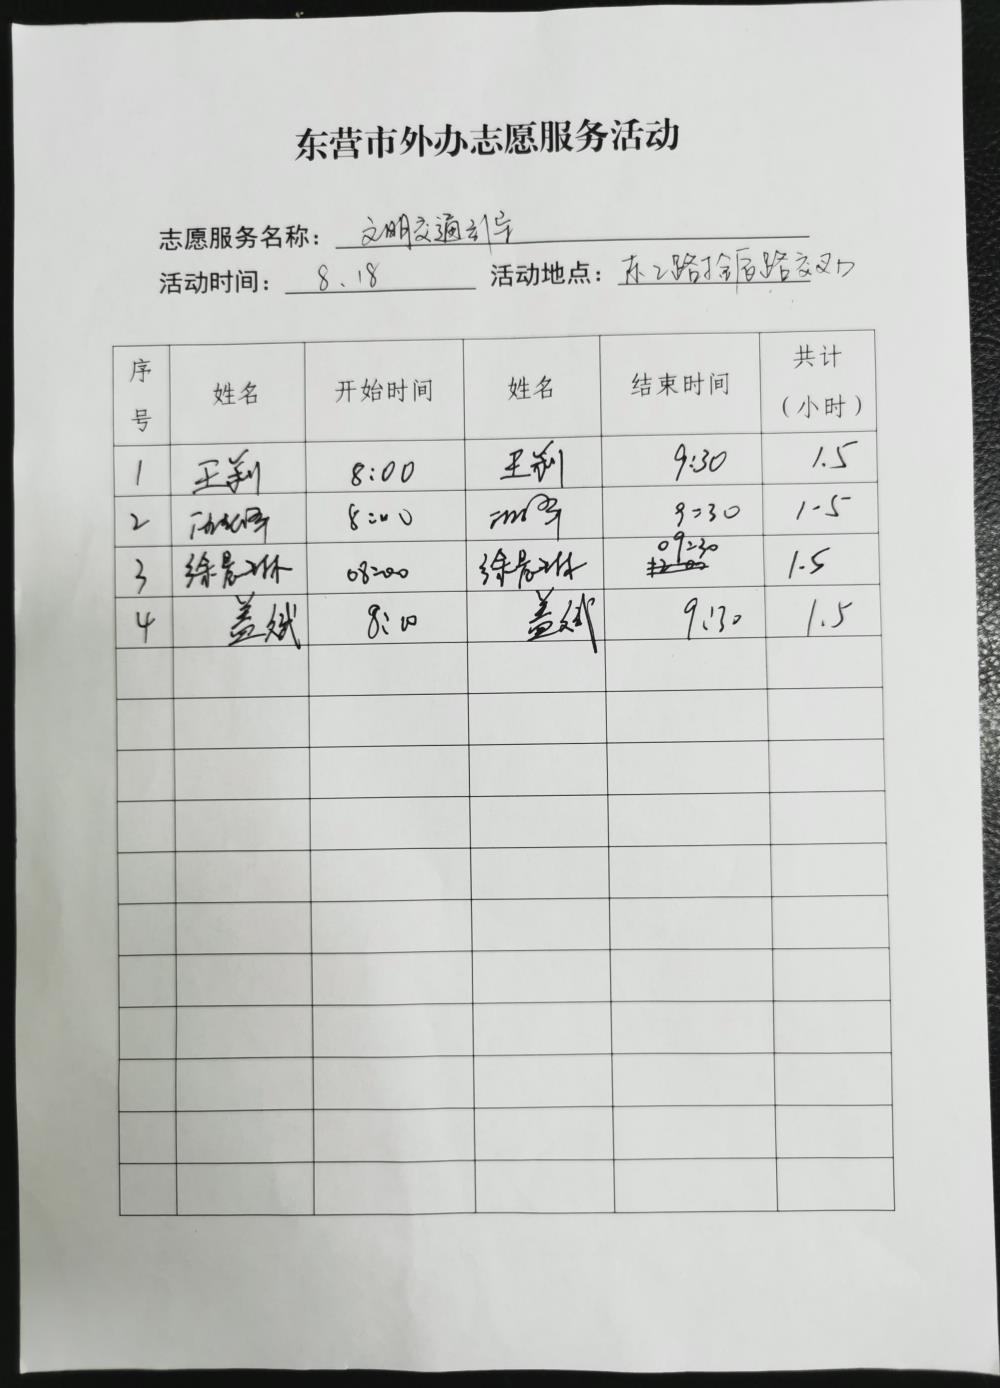 东营市外办志愿服务活动
志愿服务名称：文明交通引导
活动时间：8.18 活动地点：东二路 路交叉口
序号 姓名 开始时间 姓名 结束时间 共计（小时）
1 王 8:00 王 9:30 1.5
2 8:00 9:30 1.5
3 徐晨琳 08:00 徐晨琳 09:30 1.5
4 盖斌 8:00 盖斌 9:30 1.5